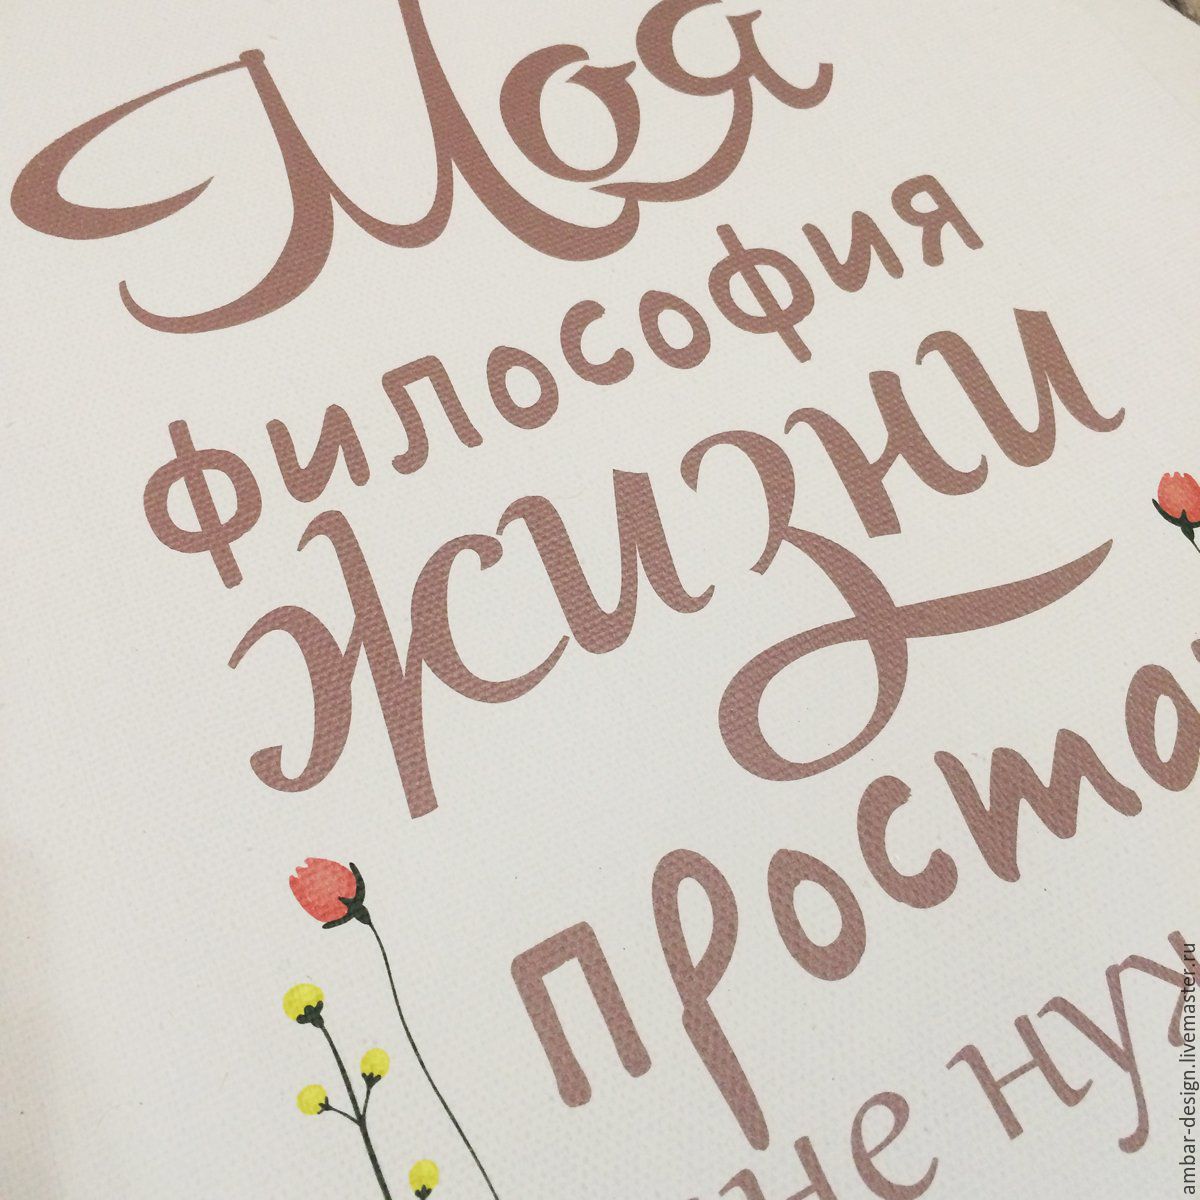 Моя
философия
жизни
проста
не
ambar-design.livemaster.ru